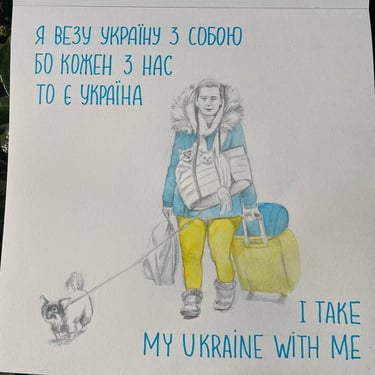 Я ВЕЗУ УКРАЇНУ З СОБОЮ
БО КОЖЕН З НАС
ТО Є УКРАЇНА
I TAKE
MY UKRAINE WITH ME